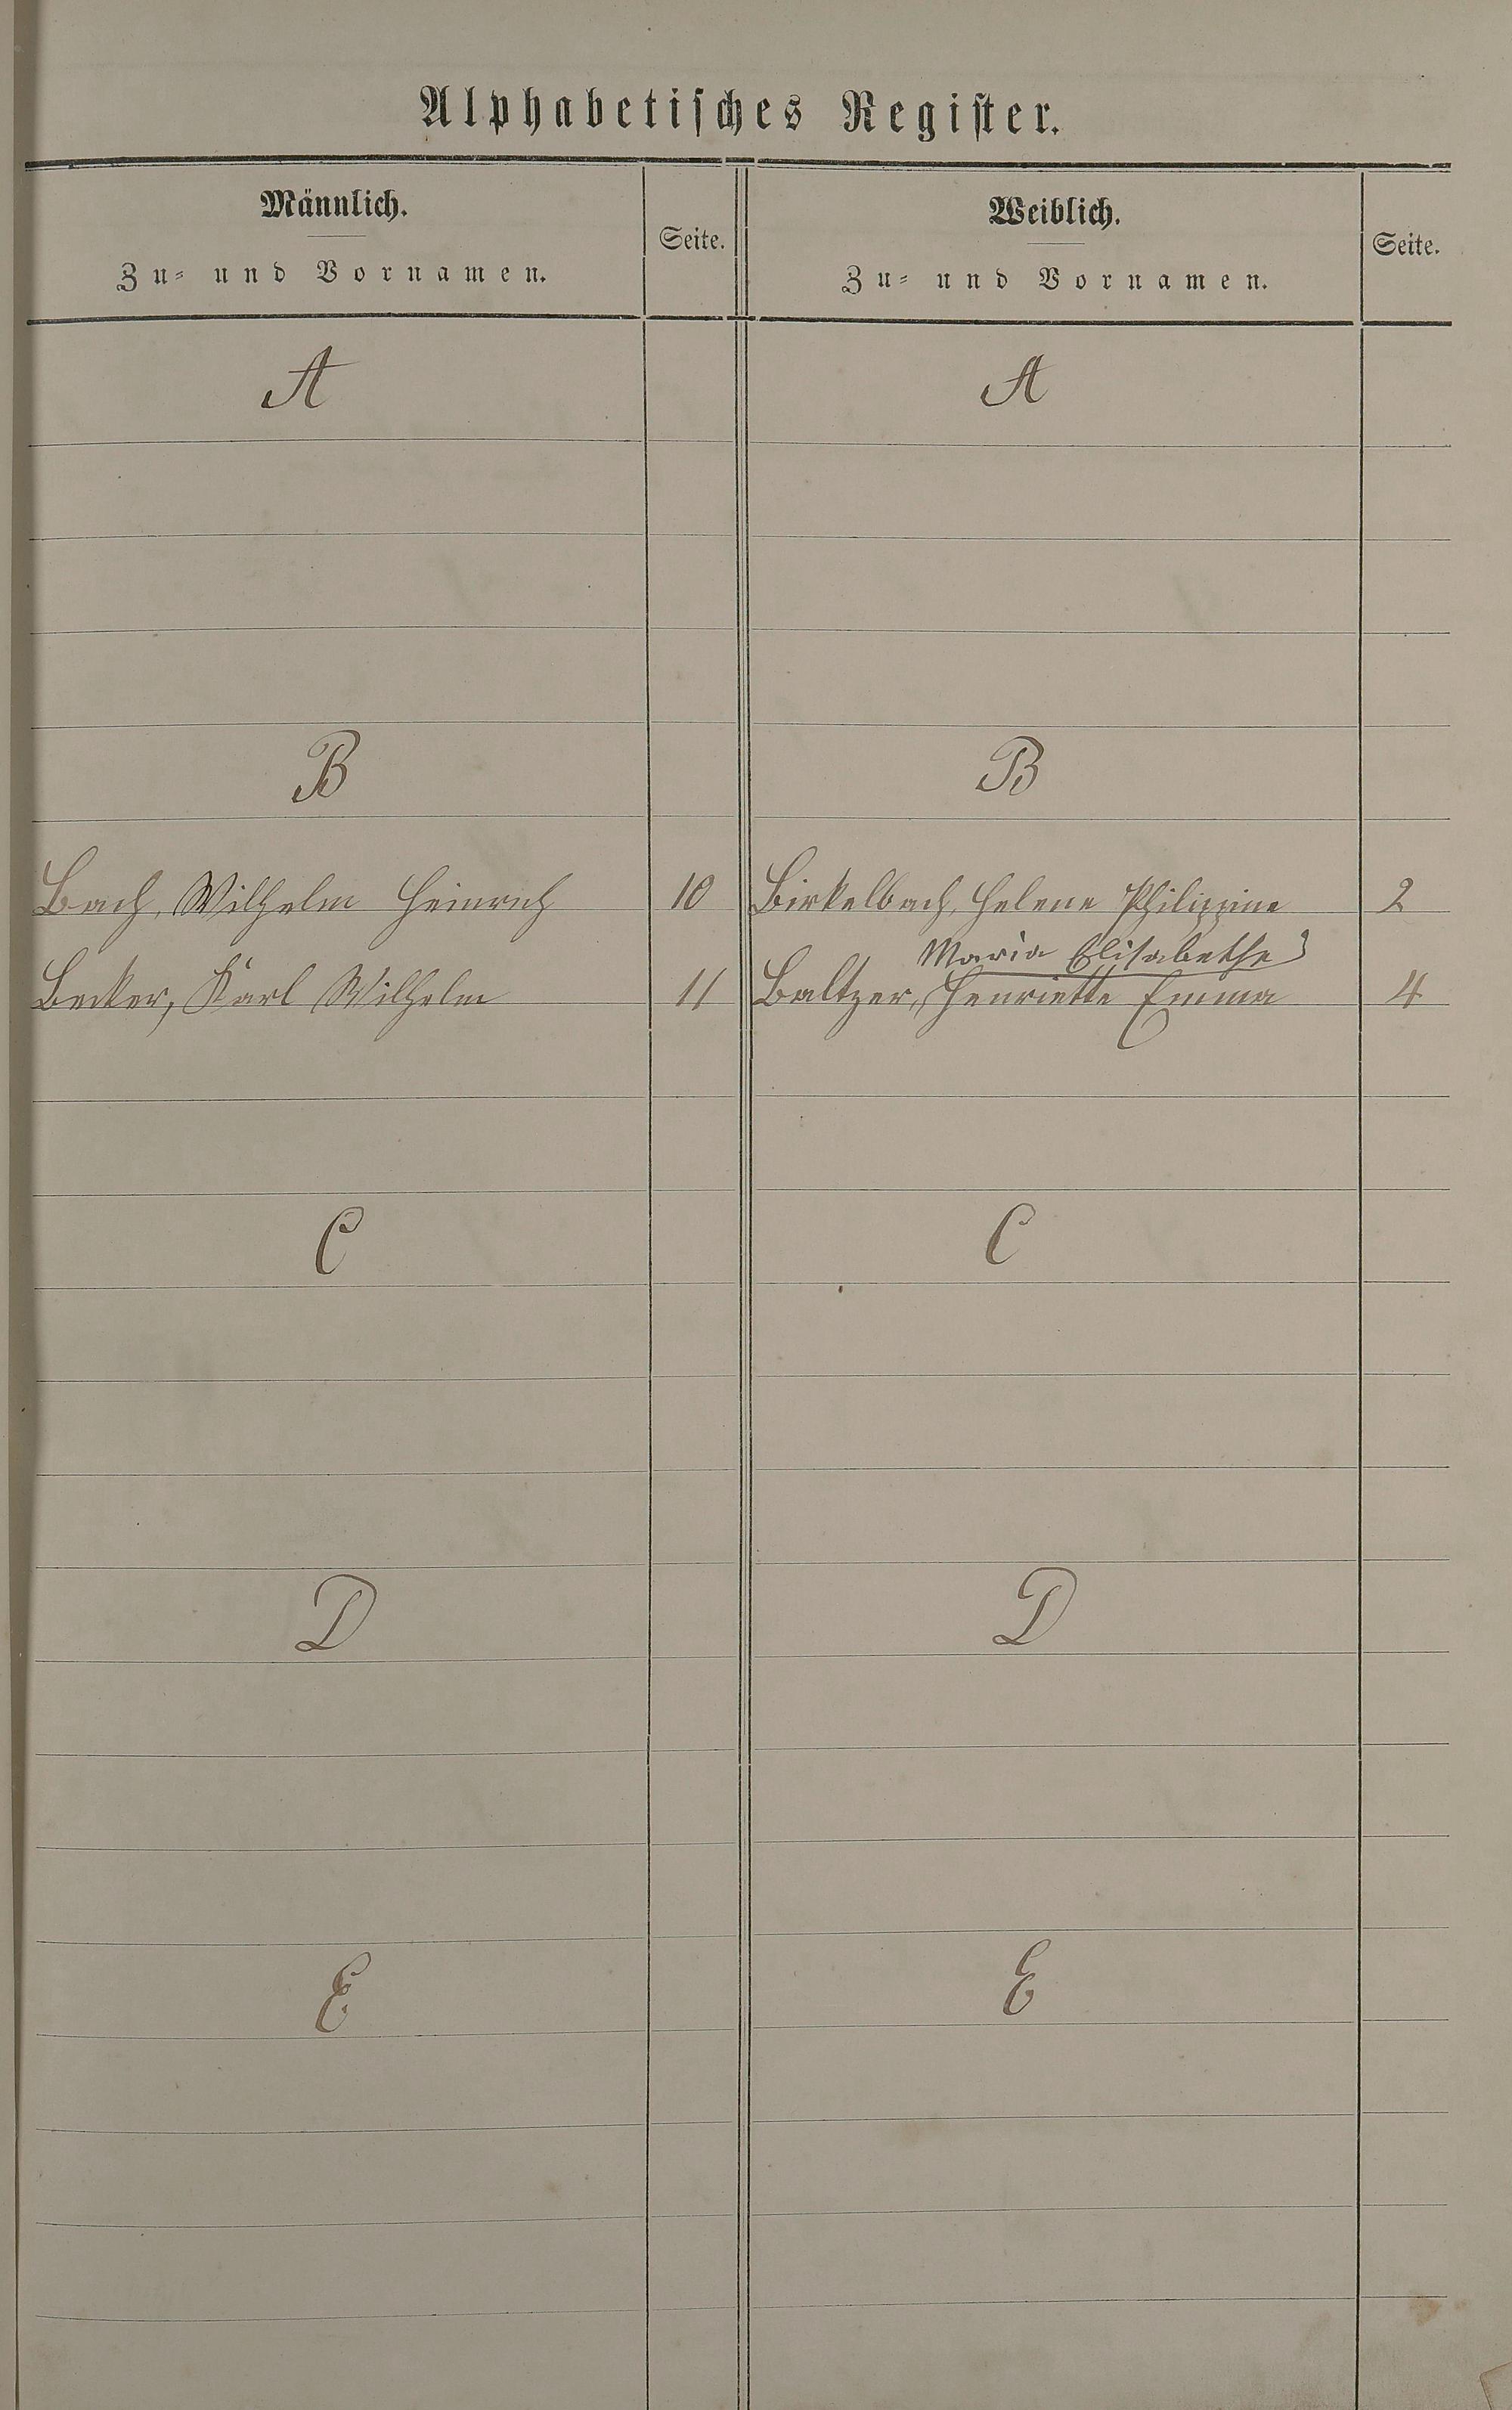 Alphabetisches Register.
Männlich. Seite. Weiblich. Seite.
Zu- und Vornamen. Zu- und Vornamen.
A A
B B
Bach, Wilhelm Heinrich 10 Birkelbach, Helene Philippine 2
Maria Elisabethe
Becker, Karl Wilhelm 11 Baltzer, Henriette Emma 4
C C
D D
E E